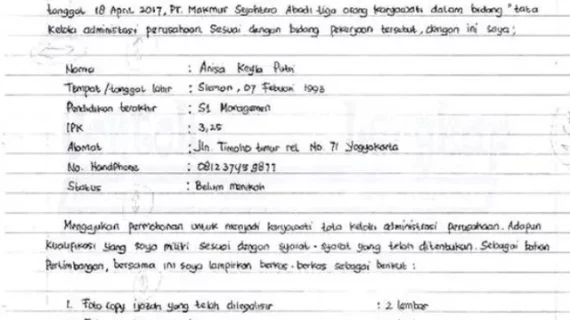 tanggal 18 April 2017, PT. Makmur Sejahtera Abadi tiga orang karyawati dalam bidang "tata
kelola administrasi perusahaan. Sesuai dengan bidang pekerjaan tersebut, dengan ini saya;
Nama : Anisa Keyla Putri
Tempat /tanggal lahir : Sleman, 07 Februari 1993
Pendidikan terakhir : S1 Manajemen
IPK : 3,25
Alamat : Jln. Timoho timur rel No. 71 Yogyakarta
No. Handphone : 081237459877
Status : Belum menikah
Mengajukan permohonan untuk menjadi karyawati tata kelola administrasi perusahaan. Adapun
kualifikasi yang saya miliki sesuai dengan syarat-syarat yang telah ditentukan. Sebagai bahan
Pertimbangan, bersama ini saya lampirkan berkas-berkas sebagai berikut :
1. Foto copy ijazah yang telah dilegalisir : 2 lembar